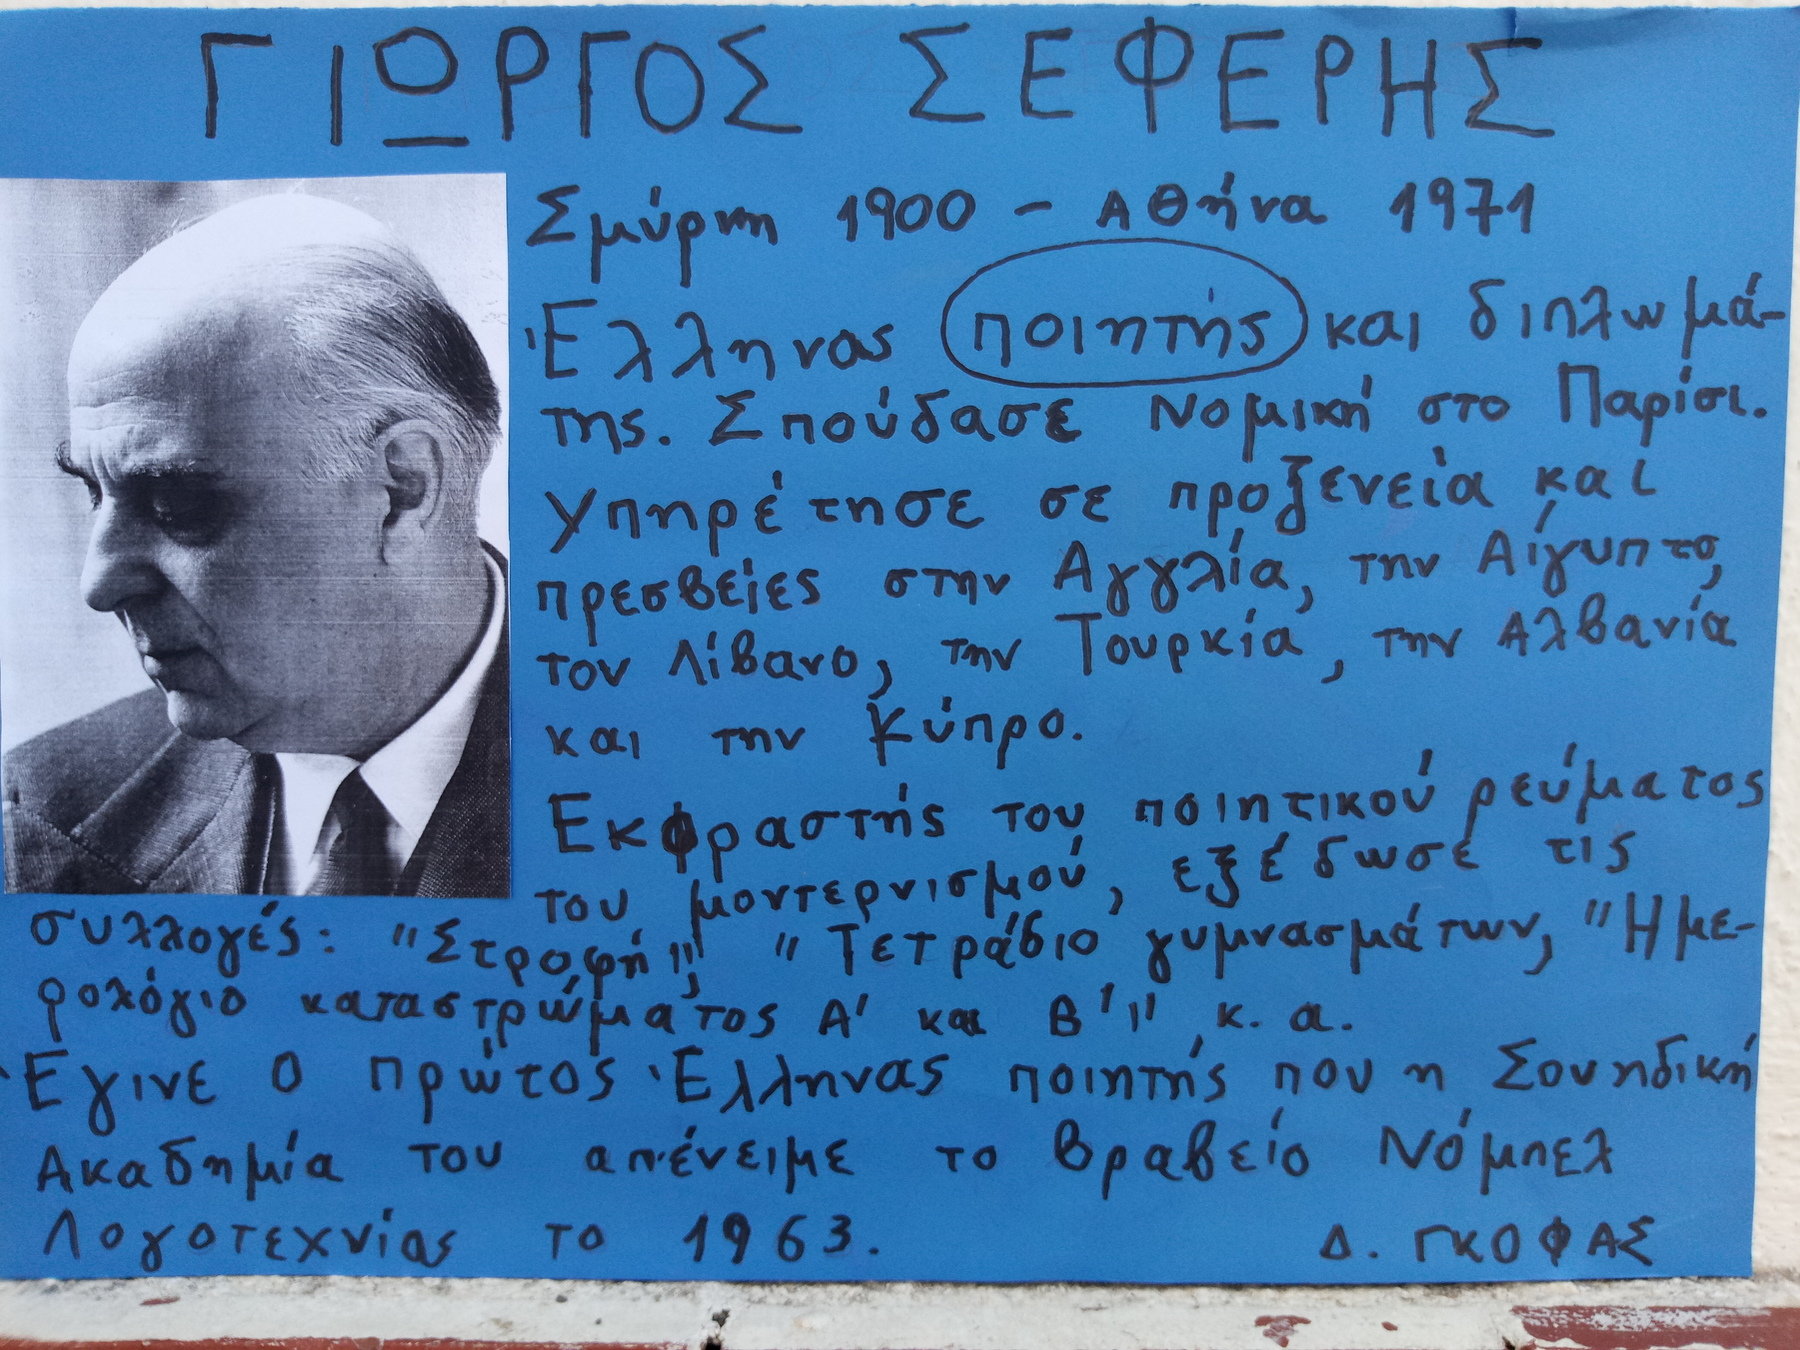 ΓΙΩΡΓΟΣ ΣΕΦΕΡΗΣ
Σμύρνη 1900 - Αθήνα 1971
Έλληνας ποιητής και διπλωμά-
της. Σπούδασε Νομική στο Παρίσι.
Υπηρέτησε σε προξενεία και
πρεσβείες στην Αγγλία, την Αίγυπτο,
τον Λίβανο, την Τουρκία, την Αλβανία
και την Κύπρο.
Εκφραστής του ποιητικού ρεύματος
του μοντερνισμού, εξέδωσε τις
συλλογές: "Στροφή", "Τετράδιο γυμνασμάτων, "Ημε-
ρολόγιο καταστρώματος Α' και Β'" κ.α.
Έγινε ο πρώτος Έλληνας ποιητής που η Σουηδική
Ακαδημία του απένειμε το βραβείο Νόμπελ
Λογοτεχνίας το 1963. Δ. ΓΚΟΦΑΣ